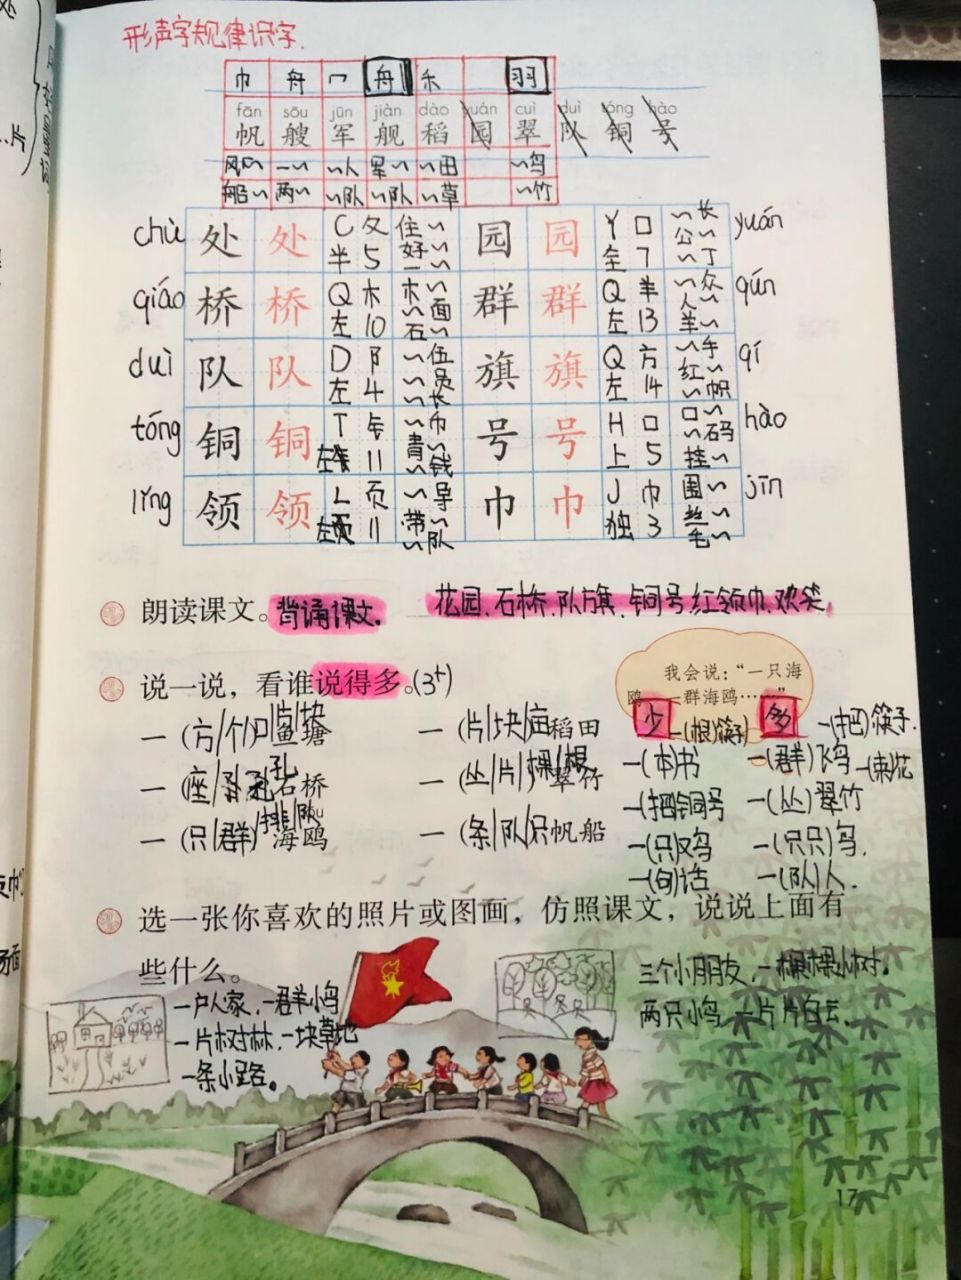 形声字规律识字.
巾 舟 冖 舟 禾 羽
fān sōu jūn jiàn dào yuán cuì duì tóng hào
帆 艘 军 舰 稻 园 翠 队 铜 号
风~ 一~ ~人 军~ ~田 ~鸟
船~ 两~ ~队 ~队 ~草 ~竹
chù 处 处 C 夂 住~ 园 园 Y 囗 ~长 yuán
半 5 好~ 一~ 全 7 公~ ~丁
qiáo 桥 桥 Q 木 木~ 群 群 Q 羊 ~众 qún
左 10 ~面 石~ 左 13 人~ 羊~
duì 队 队 D 阝 ~伍 旗 旗 Q 方 ~手 qí
左 4 ~员 ~长 左 14 红~ ~帜
tóng 铜 铜 T 钅 ~巾 号 号 H 口 口~ hào
左 11 青~ ~钱 上 5 ~码 挂~
lǐng 领 领 L 页 ~导 巾 巾 J 巾 围~ jīn
左 11 带~ ~队 独 3 丝~ 毛~
朗读课文。背诵课文。 花园、石桥、队旗、铜号、红领巾、欢笑。
说一说，看谁说得多。(3+)
我会说：“一只海
鸥，一群海鸥……”
少 一(根)筷子 多 一(把)筷子.
一(方|个|口 鱼塘 一(片|块|亩 稻田
一(本)书 一(群)飞鸟 一(束)花
一(座|孔 石桥 一(丛|片|棵|根 翠竹
一(把)铜号 一(丛)翠竹
一(只|群)排|队 海鸥 一(条|队|只 帆船
一(只)鸟 一(只只)鸟.
一(句)话 一(队)人.
选一张你喜欢的照片或图画，仿照课文，说说上面有
些什么。
一户人家，一群小鸟
一片树林，一块草地
一条小路。
三个小朋友，一棵棵小树。
两只小鸟，一片片白云。
17